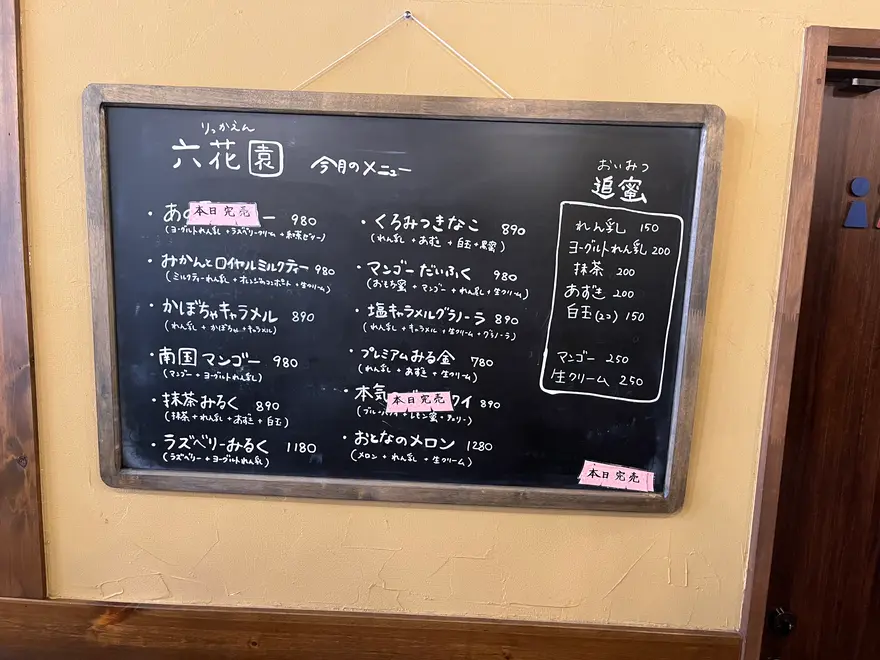 りっかえん
六花園 今月のメニュー
・あ 本日完売 ー 980
(ヨーグルトれん乳 + ラズベリークリーム + 紅茶ゼリー)
・みかんとロイヤルミルクティー 980
(ミルクティーれん乳 + オレンジのコンポート + 生クリーム)
・かぼちゃキャラメル 890
(れん乳 + かぼちゃ + キャラメル)
・南国マンゴー 980
(マンゴー + ヨーグルトれん乳)
・抹茶みるく 890
(抹茶 + れん乳 + あずき + 白玉)
・ラズベリーみるく 1180
(ラズベリー + ヨーグルトれん乳)
・くろみつきなこ 890
(れん乳 + あずき + 白玉 + 黒蜜)
・マンゴーだいふく 980
(おもち蜜 + マンゴー + れん乳 + 生クリーム)
・塩キャラメルグラノーラ 890
(れん乳 + キャラメル + 生クリーム + グラノーラ)
・プレミアムみる金 780
(れん乳 + あずき + 生クリーム)
・本気 本日完売 ワイ 890
(ブルーハワイ + レモン蜜 + チェリー)
・おとなのメロン 1280
(メロン + れん乳 + 生クリーム)
おいみつ
追蜜
れん乳 150
ヨーグルトれん乳 200
抹茶 200
あずき 200
白玉(2コ) 150
マンゴー 250
生クリーム 250
本日完売